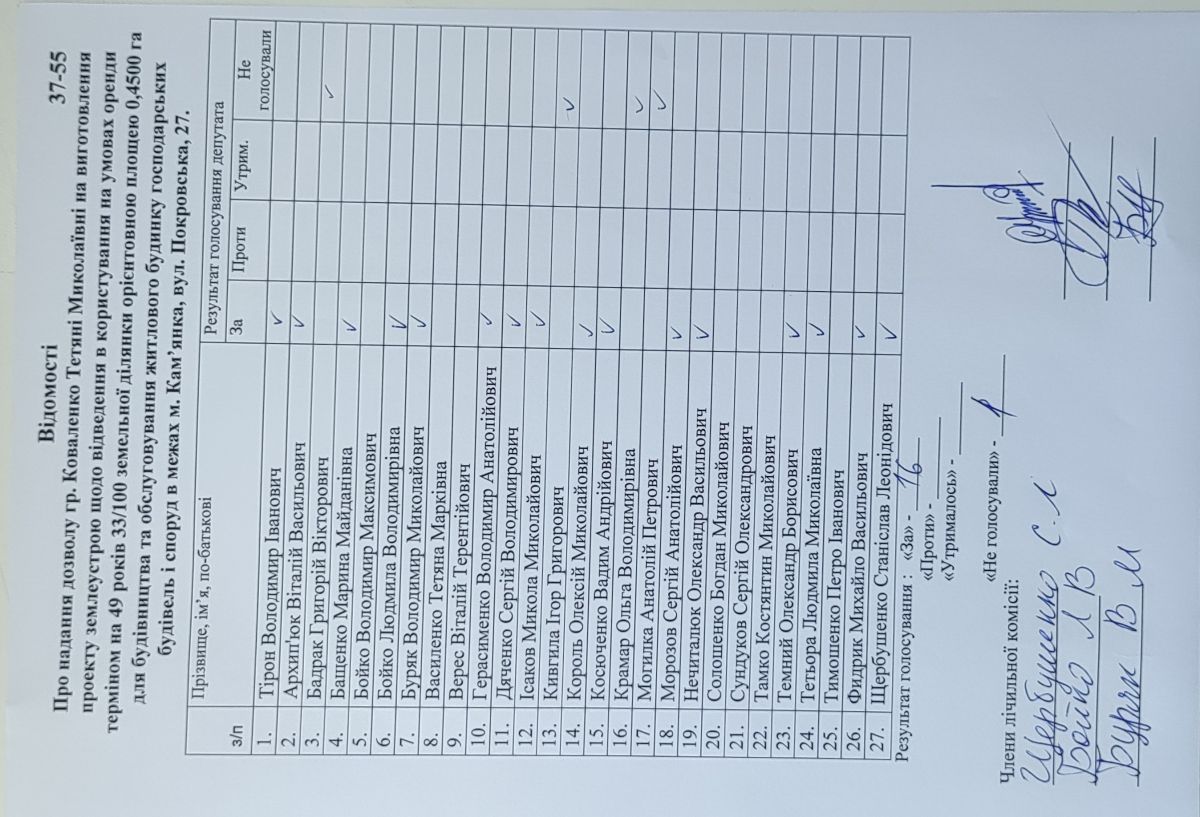 Відомості
Про надання дозволу гр. Коваленко Тетяні Миколаївні на виготовлення 37-55
проекту землеустрою щодо відведення в користування на умовах оренди
терміном на 49 років 33/100 земельної ділянки орієнтовною площею 0,4500 га
для будівництва та обслуговування житлового будинку господарських
будівель і споруд в межах м. Кам’янка, вул. Покровська, 27.
з/п Прізвище, ім’я, по-батькові Результат голосування депутата
За Проти Утрим. Не голосували
1. Тірон Володимир Іванович
2. Архип'юк Віталій Васильович
3. Бадрак Григорій Вікторович
4. Бащенко Марина Майданівна
5. Бойко Володимир Максимович
6. Бойко Людмила Володимирівна
7. Буряк Володимир Миколайович
8. Василенко Тетяна Марківна
9. Верес Віталій Терентійович
10. Герасименко Володимир Анатолійович
11. Дяченко Сергій Володимирович
12. Ісаков Микола Миколайович
13. Кивгила Ігор Григорович
14. Король Олексій Миколайович
15. Косюченко Вадим Андрійович
16. Крамар Ольга Володимирівна
17. Могилка Анатолій Петрович
18. Морозов Сергій Анатолійович
19. Нечиталюк Олександр Васильович
20. Солошенко Богдан Миколайович
21. Сундуков Сергій Олександрович
22. Тамко Костянтин Миколайович
23. Темний Олександр Борисович
24. Тетьора Людмила Миколаївна
25. Тимошенко Петро Іванович
26. Фидрик Михайло Васильович
27. Щербушенко Станіслав Леонідович
Результат голосування : «За» - 16
«Проти» -
«Утрималось» -
«Не голосували» -
Члени лічильної комісії:
Щербушенко С.Л
Бойко Л В
Буряк В М